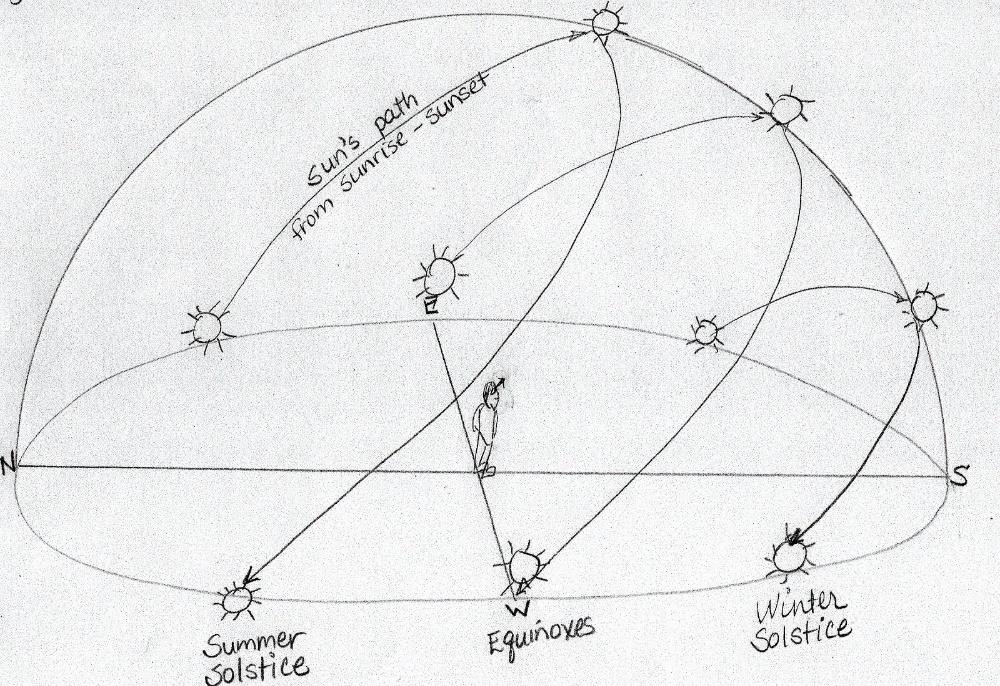 Sun's path
from sunrise - sunset
E
N
S
W
Equinoxes
Winter
Solstice
Summer
Solstice